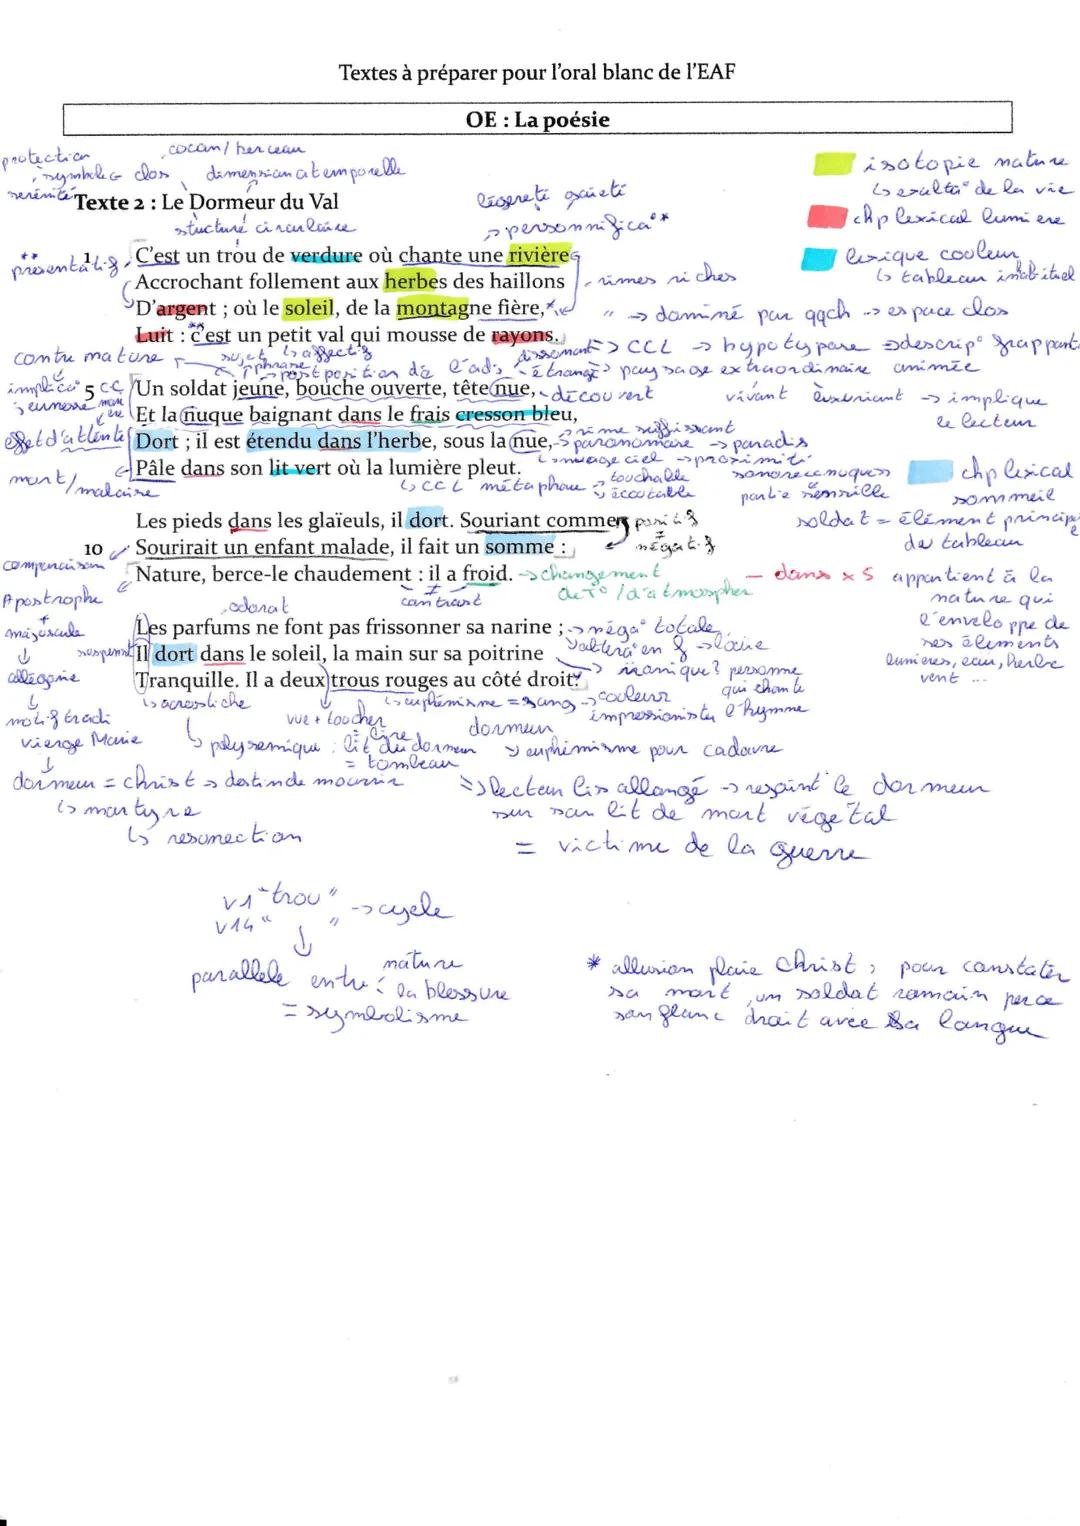 Textes à préparer pour l'oral blanc de l'EAF
OE : La poésie
protection
cocon/ berceau
symbole clos
dimension atemporelle
sérénité
Texte 2 : Le Dormeur du Val
structure circulaire
légèreté gaieté
personnifica° **
isotopie nature
↳ exalta° de la vie
chp lexical lumière
lexique couleur
↳ tableau inhabituel
** présentatif
1 C'est un trou de verdure où chante une rivière
Accrochant follement aux herbes des haillons
rimes riches
D'argent ; où le soleil, de la montagne fière,
" → dominé par qqch → espace clos
Luit : c'est un petit val qui mousse de rayons.
CCL → hypotypose → descrip° frappante
animée
contre nature
sujet
↳ affectif
postposition de l'adj
étrange
paysage extraordinaire
vivant luxuriant → implique
le lecteur
5 Un soldat jeune, bouche ouverte, tête nue,
découvert
jeunesse
Et la nuque baignant dans le frais cresson bleu,
rime suffisant
effet d'attente
Dort ; il est étendu dans l'herbe, sous la nue,
paronomase → paradis
nuage ciel → proximité
Pâle dans son lit vert où la lumière pleut.
mort/malaise
↳ CCL métaphore
touchable
écoutable
chp lexical
sommeil
soldat = élément principe
du tableau
Les pieds dans les glaïeuls, il dort. Souriant comme
positif
≠
négatif
10 Sourirait un enfant malade, il fait un somme :
comparaison
Nature, berce-le chaudement : il a froid.
→ changement
de T° / d'atmospher
contrast
— dans x 5 appartient à la
nature qui
l'enveloppe de
ses éléments
lumières, eau, herbe
vent ...
Apostrophe
+
majuscule
↓
allégorie
odorat
Les parfums ne font pas frissonner sa narine ;
→ néga° totale
suspens
Il dort dans le soleil, la main sur sa poitrine
Tranquille. Il a deux trous rouges au côté droit.
ironique? personne
qui chante
l'hymne
↳ acrostiche
vue + toucher
↳ euphémisme = sang → couleur
impressionniste
motif tradi
vierge Marie
↳ polysémique : lit du dormeur
= tombeau
dormeur
↳ euphémisme pour cadavre
dormeur = christ → destin de mourir
↳ martyre
↳ resurrection
=> lecteur lis allongé → rejoint le dormeur
sur son lit de mort végétal
= victime de la guerre
v1 "trou"
v14 " "
→ cycle
↓
parallèle entre : nature
la blessure
= symbolisme
* allusion plaie Christ, pour constater
sa mort, un soldat romain perce
son flanc droit avec sa langue